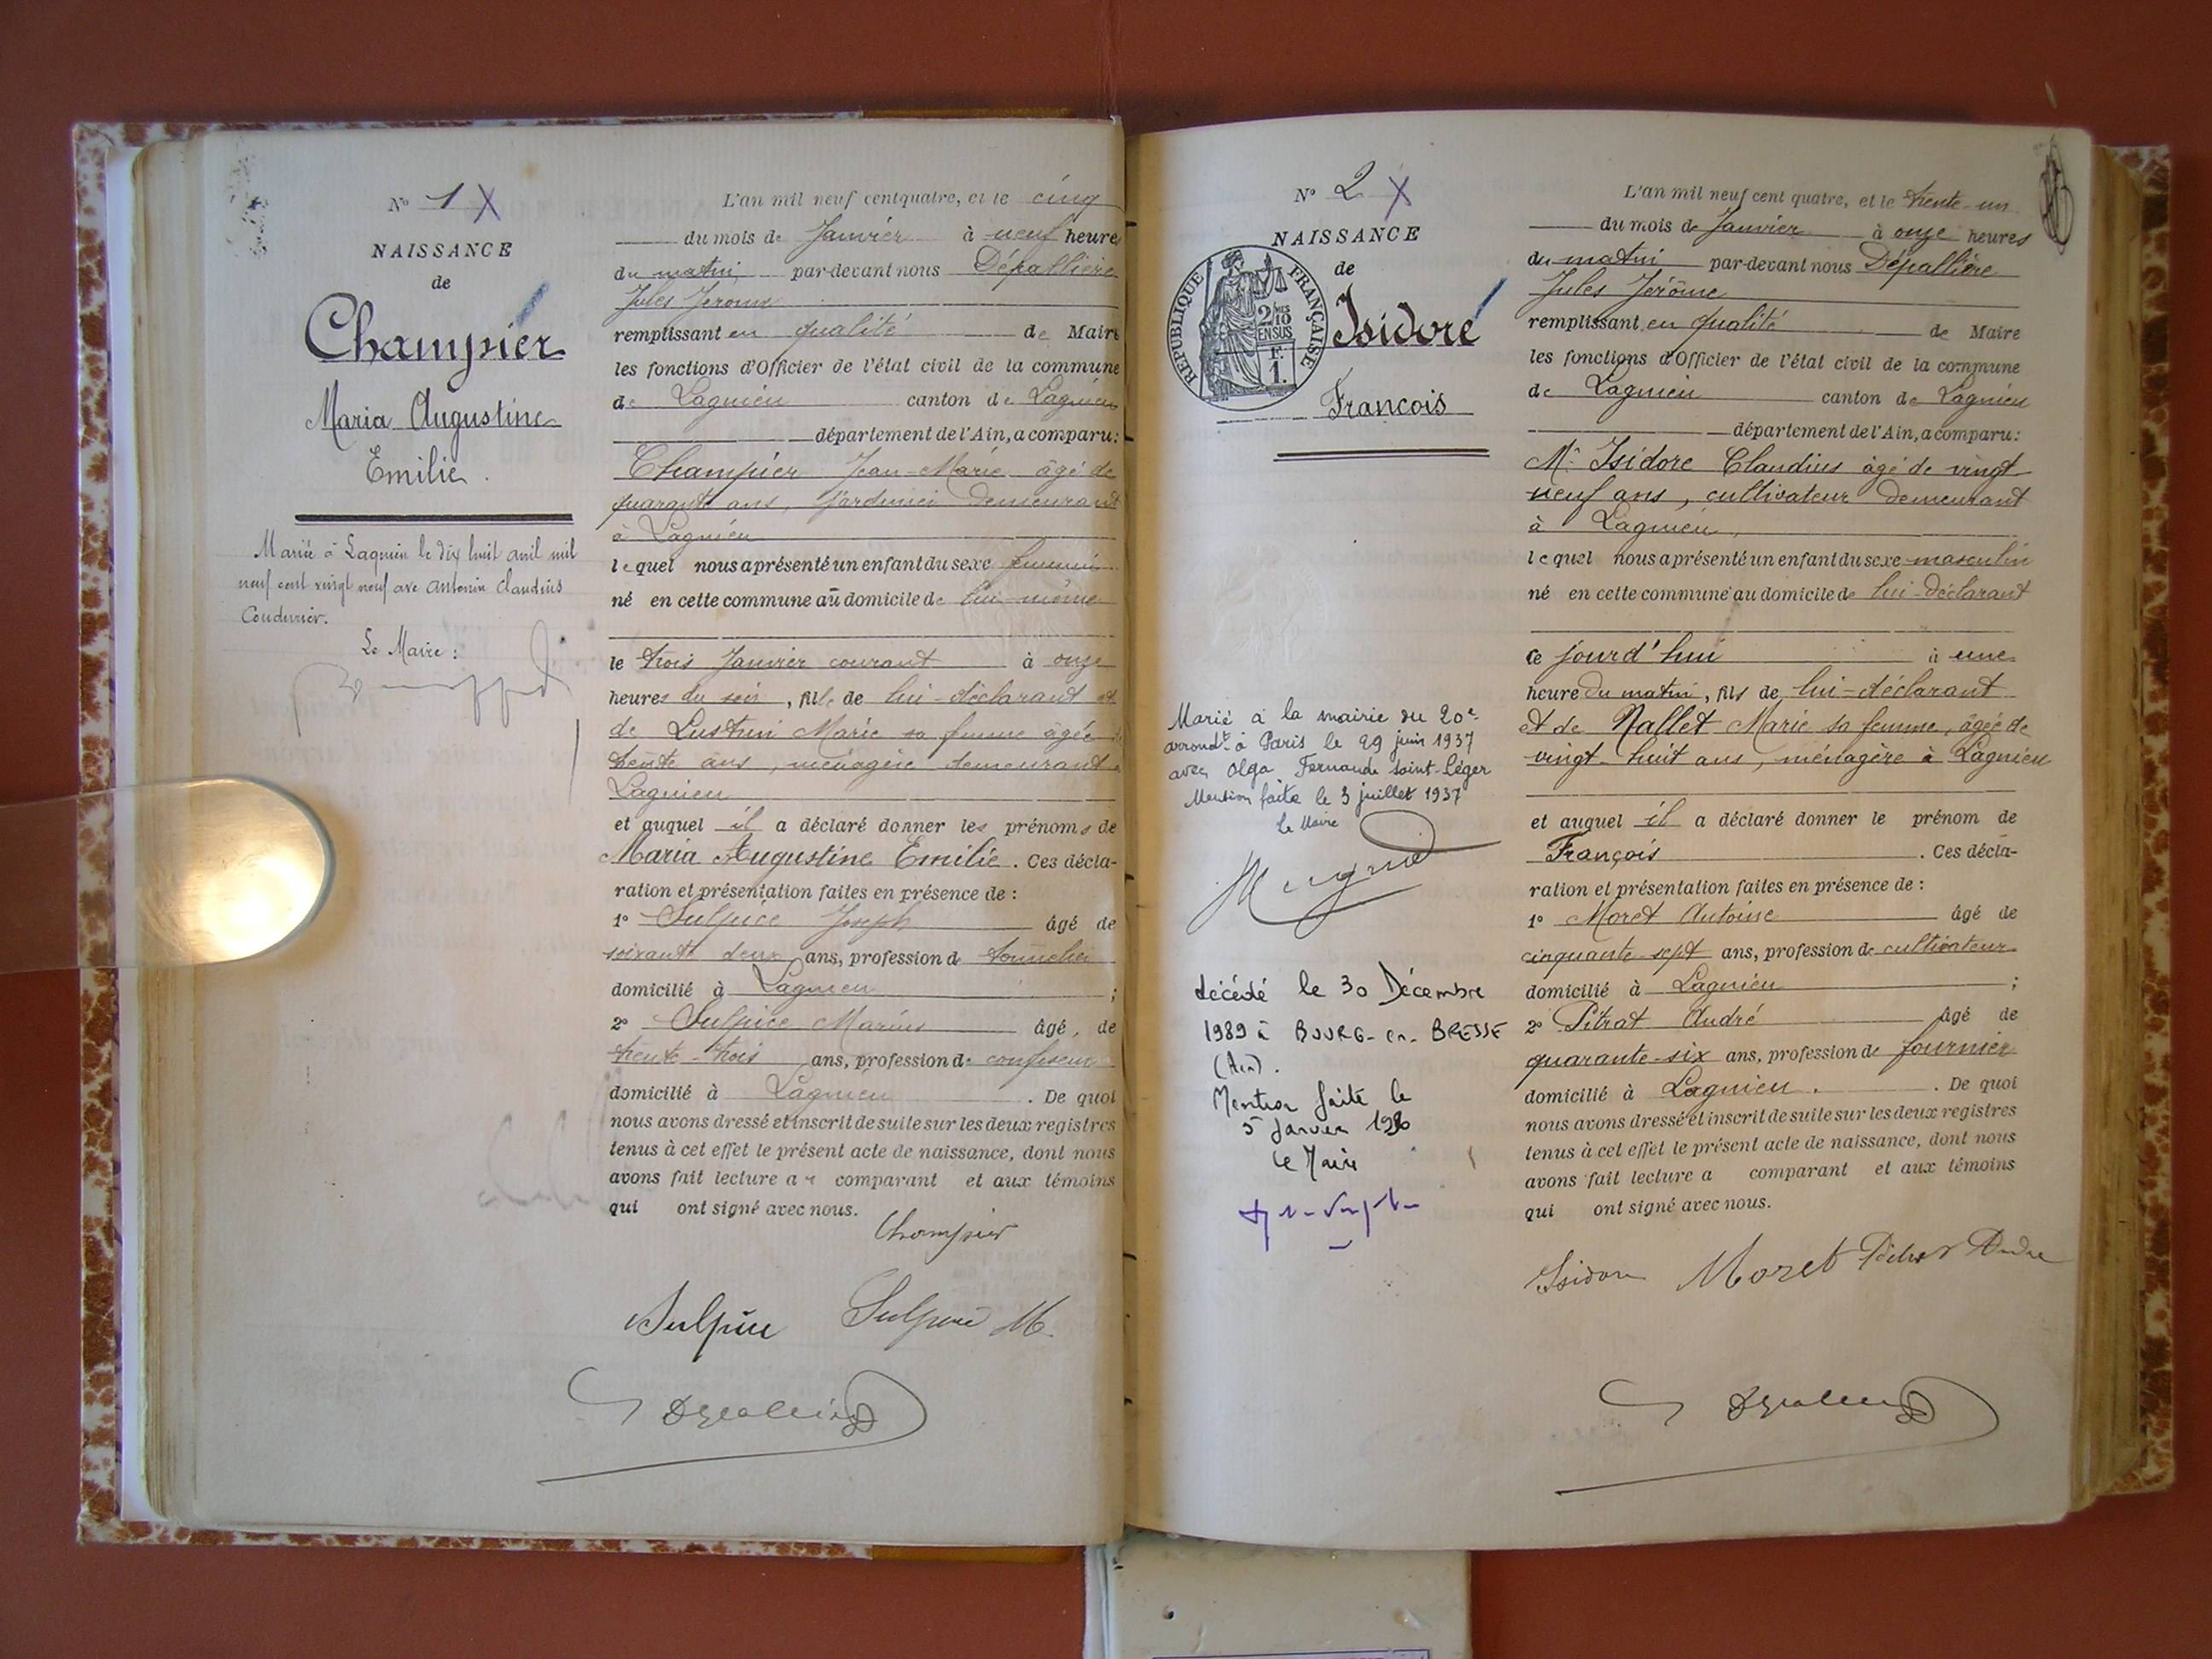 N° 1 X
NAISSANCE
de
Champier
Maria Augustine
Emilie.
Mariée à Lagnieu le dix huit avril mil
neuf cent vingt neuf avec Antonin Claudius
Coudurier.
Le Maire :
L'an mil neuf cent quatre, et le cinq
du mois de Janvier à neuf heure
du matin par-devant nous Dépallière
Jules Jérôme
remplissant en qualité de Maire
les fonctions d'Officier de l'état civil de la commune
de Lagnieu canton de Lagnieu
département de l'Ain, a comparu :
Champier Jean-Marie âgé de
quarante ans, jardinier demeurant
à Lagnieu
lequel nous a présenté un enfant du sexe féminin
né en cette commune au domicile de lui-même
le trois Janvier courant à onze
heures du soir, fille de lui-déclarant et
de Lustrin Marie sa femme âgée de
trente ans, ménagère demeurant à
Lagnieu
et auquel il a déclaré donner les prénoms de
Maria Augustine Emilie. Ces décla-
ration et présentation faites en présence de :
1° Sulpice Joseph âgé de
soixante deux ans, profession de tonnelier
domicilié à Lagnieu ;
2° Sulpice Marius âgé, de
trente-trois ans, profession de confiseur
domicilié à Lagnieu. De quoi
nous avons dressé et inscrit de suite sur les deux registres
tenus à cet effet le présent acte de naissance, dont nous
avons fait lecture au comparant et aux témoins
qui ont signé avec nous.
Champier
Sulpice Sulpice M.
Dépallière
N° 2 X
NAISSANCE
de
RÉPUBLIQUE FRANÇAISE
2/10 EN SUS
F. 1.
Isidore
François
Marié à la mairie du 20e
arrondt à Paris le 29 juin 1937
avec Olga Fernande Saint-Léger
Mention faite le 3 juillet 1937
Le Maire
décédé le 30 Décembre
1989 à BOURG-en-BRESSE
(Ain).
Mention faite le
5 Janvier 1990
Le Maire
L'an mil neuf cent quatre, et le trente-un
du mois de Janvier à onze heures
du matin par-devant nous Dépallière
Jules Jérôme
remplissant en qualité de Maire
les fonctions d'Officier de l'état civil de la commune
de Lagnieu canton de Lagnieu
département de l'Ain, a comparu :
Mr Isidore Claudius âgé de vingt
neuf ans, cultivateur demeurant
à Lagnieu,
lequel nous a présenté un enfant du sexe masculin
né en cette commune au domicile de lui-déclarant
ce jourd'hui à une
heure du matin, fils de lui-déclarant
et de Nallet Marie sa femme, âgée de
vingt-huit ans, ménagère à Lagnieu
et auquel il a déclaré donner le prénom de
François. Ces décla-
ration et présentation faites en présence de :
1° Moret Antoine âgé de
cinquante-sept ans, profession de cultivateur
domicilié à Lagnieu ;
2° Pitrat André âgé de
quarante-six ans, profession de fournier
domicilié à Lagnieu. De quoi
nous avons dressé et inscrit de suite sur les deux registres
tenus à cet effet le présent acte de naissance, dont nous
avons fait lecture a comparant et aux témoins
qui ont signé avec nous.
Isidore Moret Pitrat André
Dépallière